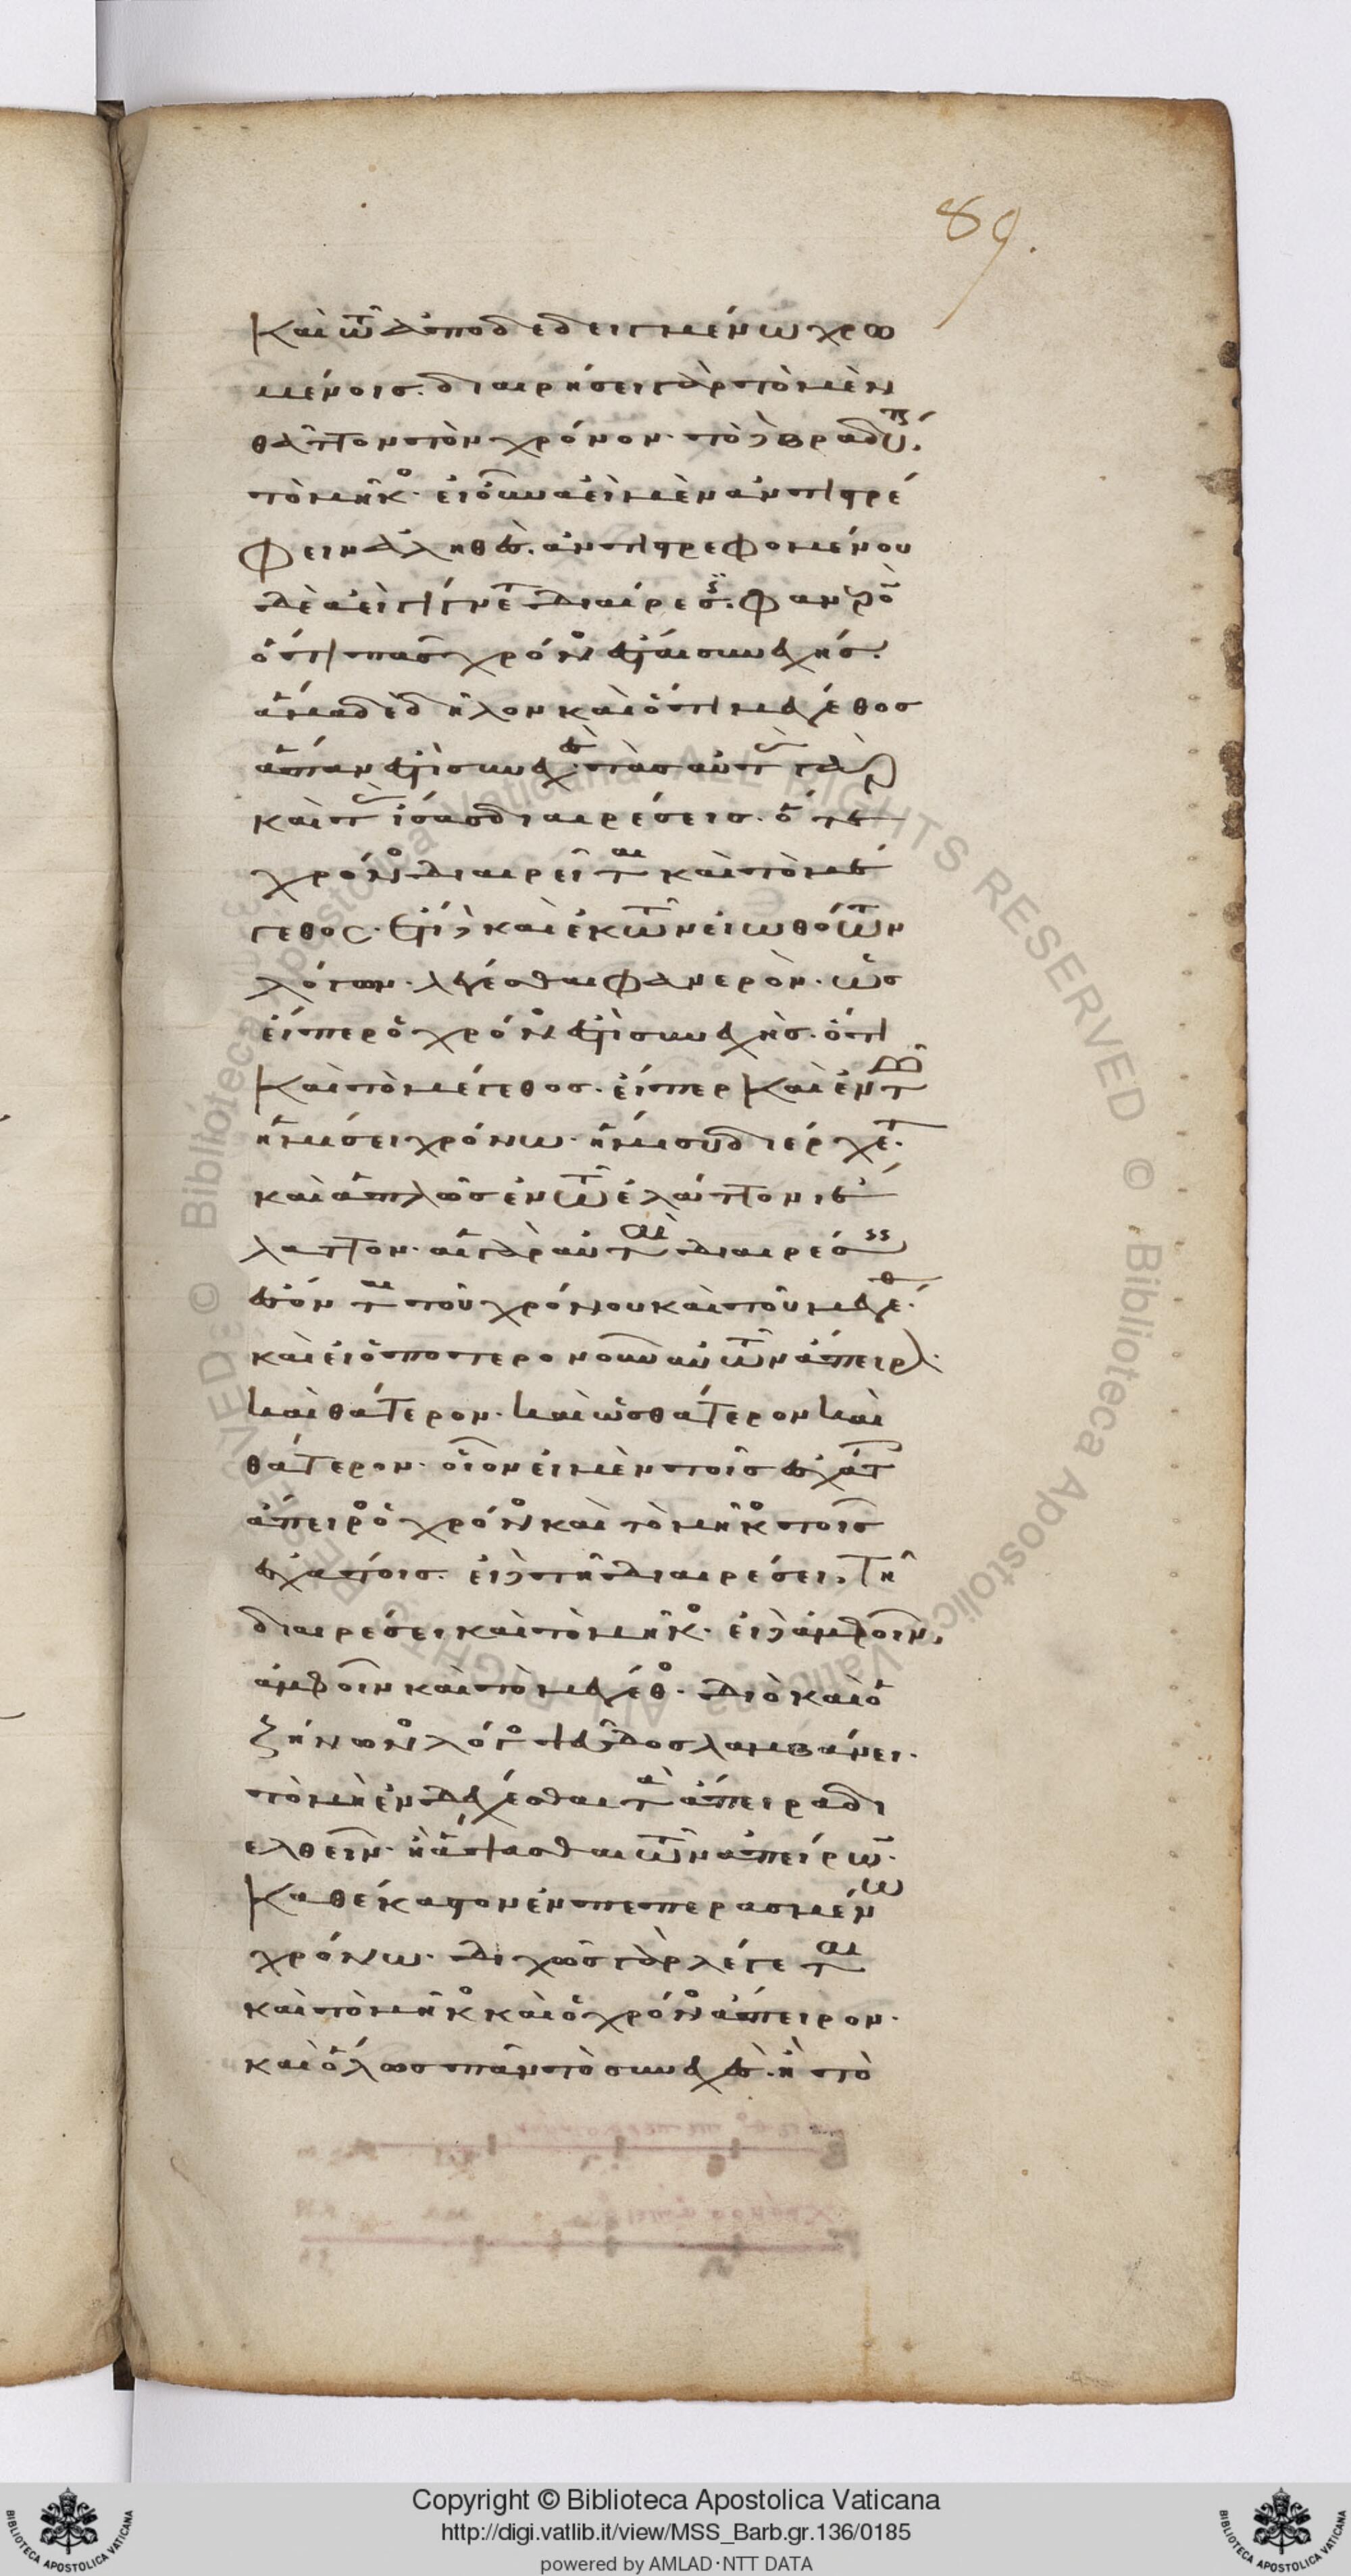 89.
καὶ τῶ ἀποδεδειγμένω χρω
μένοις. διαιρήσει γὰρ τὸ μὲν
θᾶττον τὸν χρόνον. τὸ δὲ βραδύτερον.
τὸ μῆκος. εἰ οὖν ἀεὶ μὲν ἀντιστρέ
φειν ἀληθές. ἀντιστρεφομένου
δὲ ἀεὶ γίγνεται διαίρεσις. φανερὸν
ὅτι πᾶς χρόνος ἔσται συνεχής.
ἅμα δὲ δῆλον καὶ ὅτι μέγεθος
ἅπαν ἐστὶ συνεχές. τὰς αὐτὰς γὰρ
καὶ τὰς ἴσας διαιρέσεις. ὅ τε
χρόνος διαιρεῖται καὶ τὸ μέ
γεθος. ἔτι δὲ καὶ ἐκ τῶν εἰωθότων
λόγων λέγεσθαι φανερὸν. ὡς
εἴπερ ὁ χρόνος ἐστὶ συνεχὴς. ὅτι
καὶ τὸ μέγεθος. εἴπερ καὶ ἐν τῶ
ἡμίσει χρόνω. ἥμισυ διέρχεται.
καὶ ἁπλῶς ἐν τῶ ἐλάττονι ἔ
λαττον. αἱ γὰρ αὐταὶ διαιρέσεις
ἔσονται τοῦ χρόνου καὶ τοῦ μεγέθους.
καὶ εἰ ὁποτερονοῦν αὐτῶν ἄπειρον.
καὶ θάτερον. καὶ ὡς θάτερον καὶ
θάτερον. οἷον εἰ μὲν τοῖς ἐσχάτοις
ἄπειρος ὁ χρόνος καὶ τὸ μῆκος τοῖς
ἐσχάτοις. εἰ δὲ τῆ διαιρέσει, τῆ
διαιρέσει καὶ τὸ μῆκος. εἰ δὲ ἀμφοῖν,
ἀμφοῖν καὶ τὸ μέγεθος. διὸ καὶ ὁ
ζήνωνος λόγος ψεῦδος λαμβάνει.
τὸ μὴ ἐνδέχεσθαι τὰ ἄπειρα δι
ελθεῖν. ἢ ἅψασθαι τῶν ἀπείρων.
καθέκαστον ἐν πεπερασμένω
χρόνω. διχῶς γὰρ λέγεται
καὶ τὸ μῆκος καὶ ὁ χρόνος ἄπειρον.
καὶ ὅλως πᾶν τὸ συνεχές. ἢ τὸ
Copyright © Biblioteca Apostolica Vaticana
http://digi.vatlib.it/view/MSS_Barb.gr.136/0185
powered by AMLAD·NTT DATA